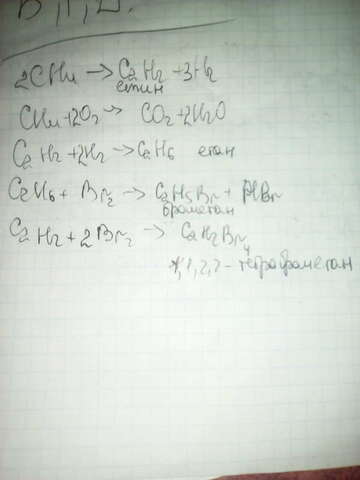 2CH4 → C2H2 + 3H2
етин
CH4 + 2O2 → CO2 + 2H2O
C2H2 + 2H2 → C2H6 етан
C2H6 + Br2 → C2H5Br + HBr
брометан
C2H2 + 2Br2 → C2H2Br4
1,1,2,2 - тетраброметан